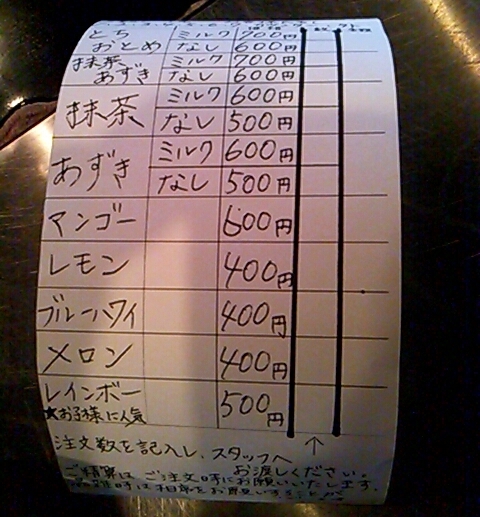 とち ミルク 700円
おとめ なし 600円
抹茶 ミルク 700円
あずき なし 600円
抹茶 ミルク 600円
なし 500円
あずき ミルク 600円
なし 500円
マンゴー 600円
レモン 400円
ブルーハワイ 400円
メロン 400円
レインボー 500円
★お子様に人気
注文数を記入し、スタッフへ ↑
お渡しください。
ご精算は、ご注文時にお願いいたします。